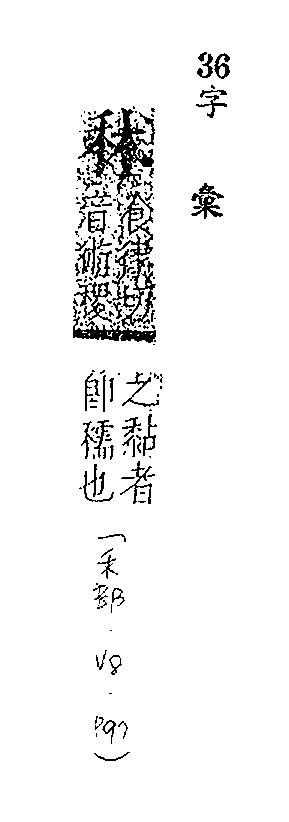 36
字彙
秫
食律切
音術稷
之黏者
卽穤也
(禾部.V8.P97)